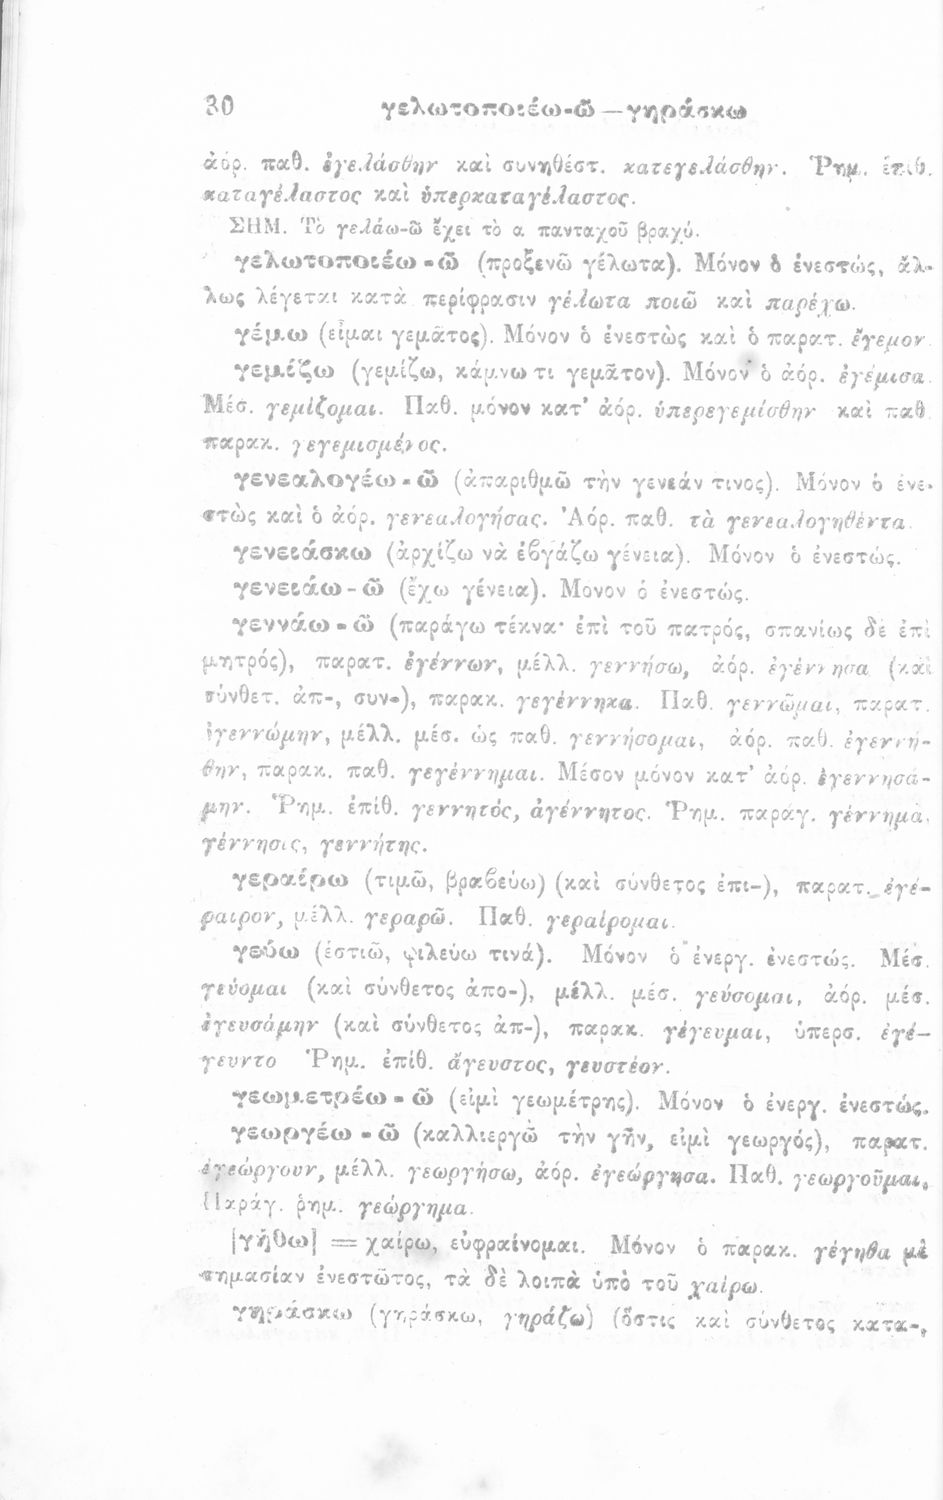 30 γελωτοποιέω-ῶ — γηράσκω
ἀόρ. παθ. ἐγελάσθην καὶ συνηθέστ. κατεγελάσθην. Ῥημ. ἐπιθ.
καταγέλαστος καὶ ὑπερκαταγέλαστος.
ΣΗΜ. Τὸ γελάω-ῶ ἔχει τὸ α πανταχοῦ βραχύ.
γελωτοποιέω-ῶ (προξενῶ γέλωτα). Μόνον ὁ ἐνεστώς, ἄλ-
λως λέγεται κατὰ περίφρασιν γέλωτα ποιῶ καὶ παρέχω.
γέμω (εἶμαι γεμᾶτος). Μόνον ὁ ἐνεστὼς καὶ ὁ παρατ. ἔγεμον.
γεμίζω (γεμίζω, κάμνω τι γεμᾶτον). Μόνον ὁ ἀόρ. ἐγέμισα.
Μέσ. γεμίζομαι. Παθ. μόνον κατ' ἀόρ. ὑπερεγεμίσθην καὶ παθ.
παρακ. γεγεμισμένος.
γενεαλογέω-ῶ (ἀπαριθμῶ τὴν γενεάν τινος). Μόνον ὁ ἐνε-
στὼς καὶ ὁ ἀόρ. γενεαλογήσας. Ἀόρ. παθ. τὰ γενεαλογηθέντα.
γενειάσκω (ἀρχίζω νὰ ἐβγάζω γένεια). Μόνον ὁ ἐνεστώς.
γενειάω-ῶ (ἔχω γένεια). Μονον ὁ ἐνεστώς.
γεννάω-ῶ (παράγω τέκνα· ἐπὶ τοῦ πατρός, σπανίως δὲ ἐπὶ
μητρός), παρατ. ἐγέννων, μέλλ. γεννήσω, ἀόρ. ἐγέννησα (καὶ
σύνθετ. ἀπ-, συν-), παρακ. γεγέννηκα. Παθ. γεννῶμαι, παρατ.
ἐγεννώμην, μέλλ. μέσ. ὡς παθ. γεννήσομαι, ἀόρ. παθ. ἐγεννή-
θην, παρακ. παθ. γεγέννημαι. Μέσον μόνον κατ' ἀόρ. ἐγεννησά-
μην. Ῥημ. ἐπίθ. γεννητός, ἀγέννητος. Ῥημ. παράγ. γέννημα,
γέννησις, γεννήτης.
γεραίρω (τιμῶ, βραβεύω) (καὶ σύνθετος ἐπι-), παρατ. ἐγέ-
ραιρον, μέλλ. γεραρῶ. Παθ. γεραίρομαι.
γεύω (ἑστιῶ, φιλεύω τινά). Μόνον ὁ ἐνεργ. ἐνεστώς. Μέσ.
γεύομαι (καὶ σύνθετος ἀπο-), μέλλ. μέσ. γεύσομαι, ἀόρ. μέσ.
ἐγευσάμην (καὶ σύνθετος ἀπ-), παρακ. γέγευμαι, ὑπερσ. ἐγέ-
γευντο Ῥημ. ἐπίθ. ἄγευστος, γευστέον.
γεωμετρέω-ῶ (εἰμὶ γεωμέτρης). Μόνον ὁ ἐνεργ. ἐνεστώς.
γεωργέω-ῶ (καλλιεργῶ τὴν γῆν, εἰμὶ γεωργός), παρατ.
ἐγεώργουν, μέλλ. γεωργήσω, ἀόρ. ἐγεώργησα. Παθ. γεωργοῦμαι.
Παράγ. ῥημ. γεώργημα.
[γήθω] = χαίρω, εὐφραίνομαι. Μόνον ὁ παρακ. γέγηθα μὲ
σημασίαν ἐνεστῶτος, τὰ δὲ λοιπὰ ὑπὸ τοῦ χαίρω.
γηράσκω (γηράσκω, γηράζω) (ὅστις καὶ σύνθετος κατα-,